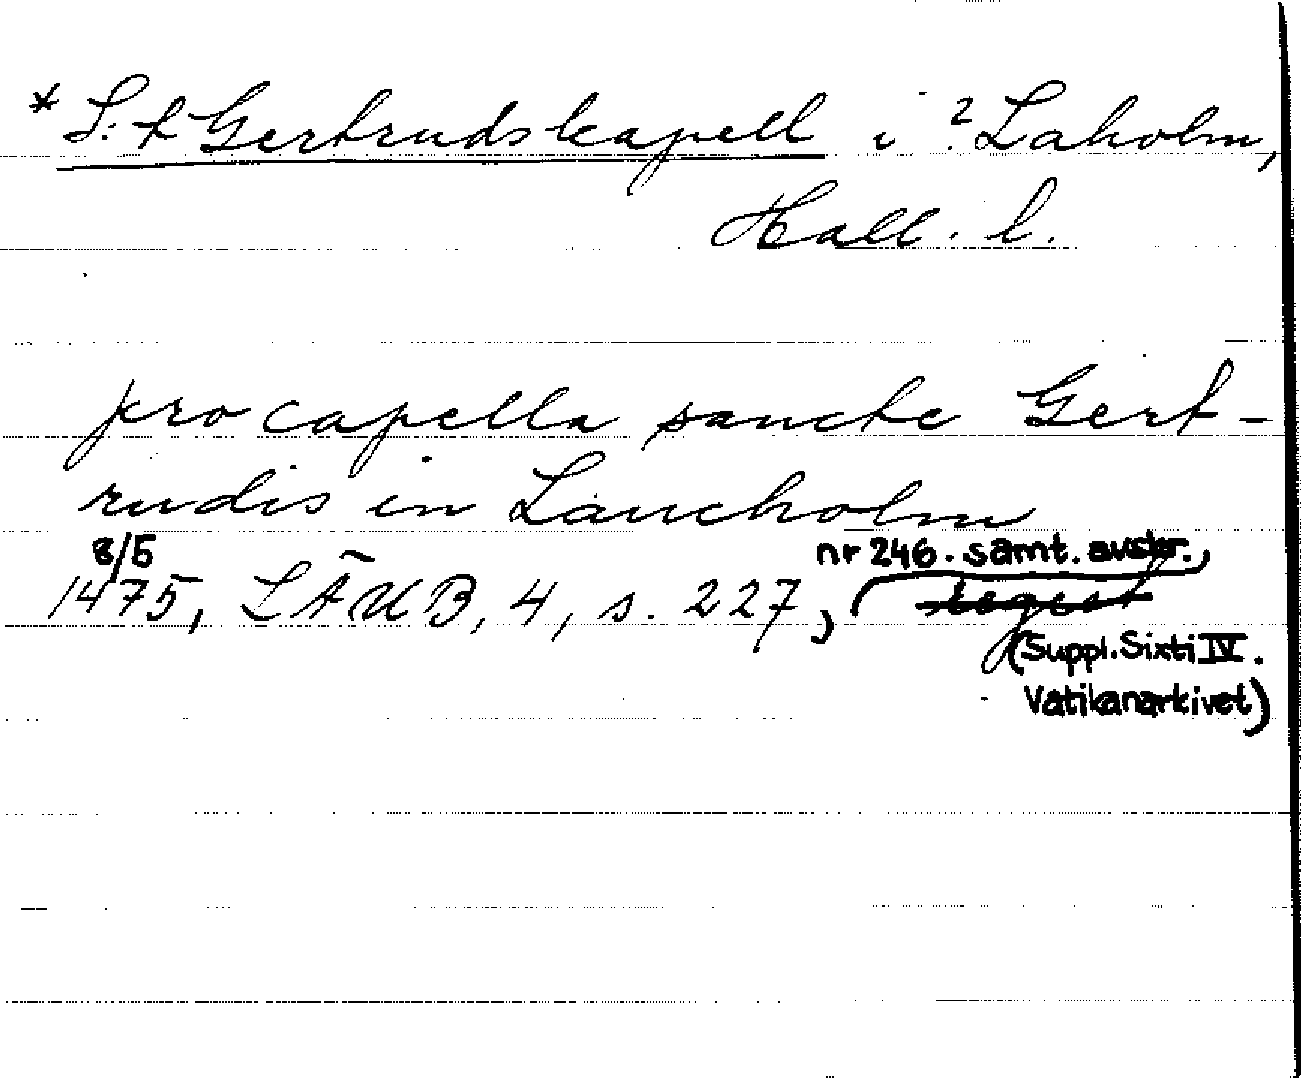 * S:t Gertrudskapell i ? Laholm,
Hall. l.
pro capella sancte Gert-
rudis in Laucholm
8/5 nr 246. samt. avskr.
1475, LÄUB, 4, s. 227, regest
(Suppl. Sixti IV.
Vatikanarkivet)